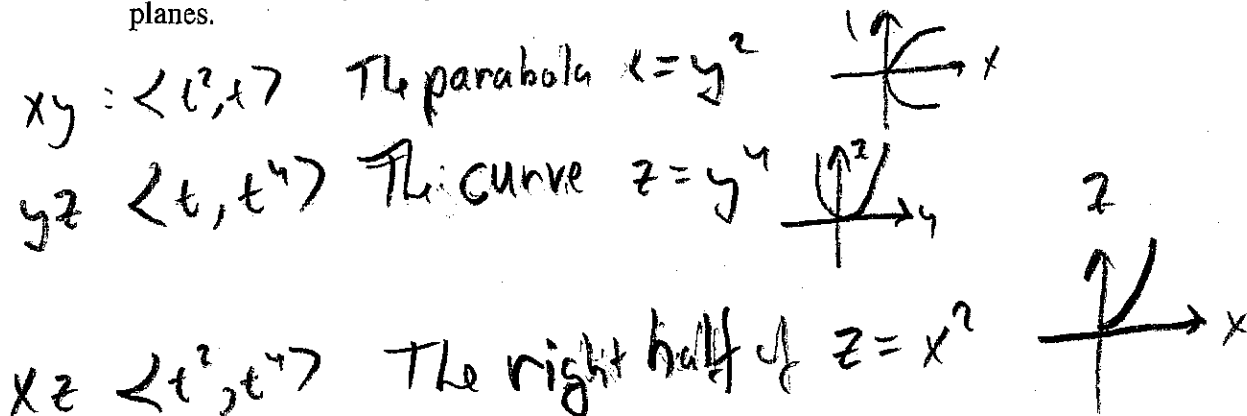 planes.
xy : <t², t> The parabola x = y² x
yz <t, t⁴> The curve z = y⁴ z y
z
xz <t², t⁴> The right half of z = x² x